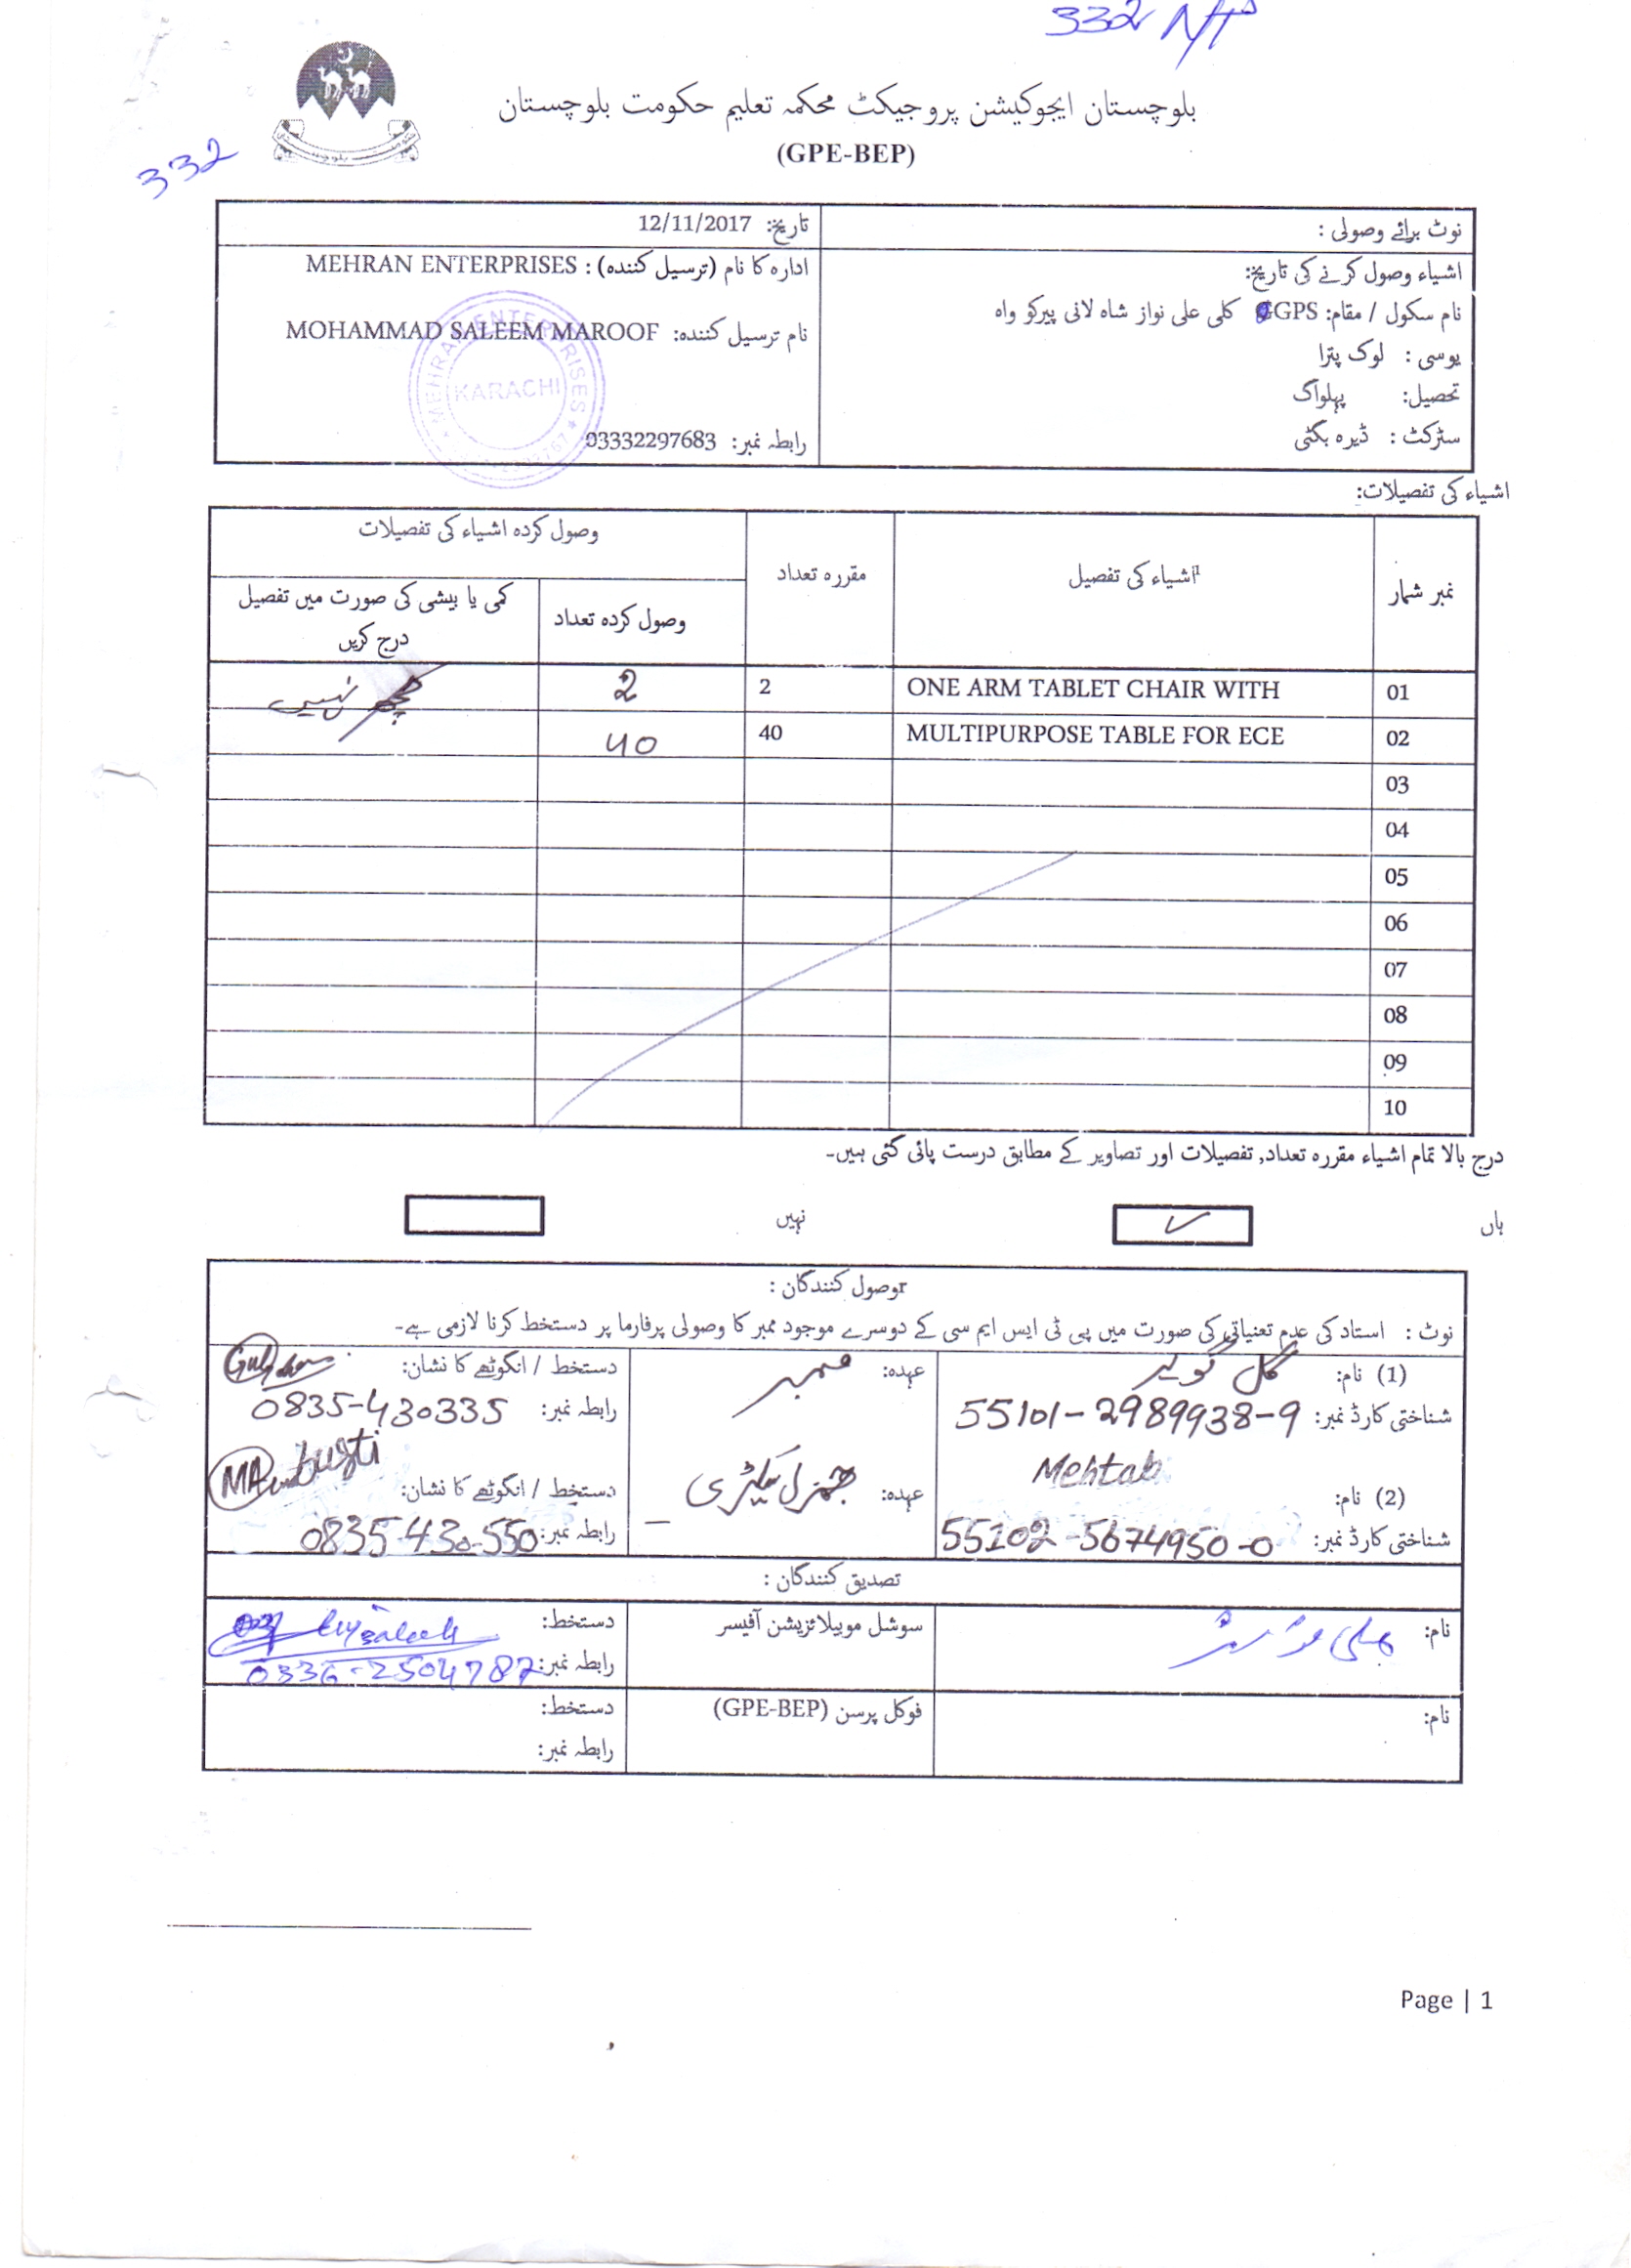 332 N/P
332
بلوچستان ایجوکیشن پروجیکٹ محکمہ تعلیم حکومت بلوچستان
(GPE-BEP)
نوٹ برائے وصولی :
تاریخ: 12/11/2017
اشیاء وصول کرنے کی تاریخ:
نام سکول / مقام: GGPS کلی علی نواز شاہ لانی پیرکو واہ
یوسی : لوک پترا
تحصیل: پهلواگ
سٹرکٹ : ڈیرہ بگٹی
ادارہ کا نام (ترسیل کنندہ) : MEHRAN ENTERPRISES
نام ترسیل کنندہ: MOHAMMAD SALEEM MAROOF
رابطہ نمبر: 03332297683
MEHRAN ENTERPRISES
KARACHI
اشیاء کی تفصیلات:
نمبر شمار
اشیاء کی تفصیل
مقررہ تعداد
وصول کردہ اشیاء کی تفصیلات
وصول کردہ تعداد
کمی یا بیشی کی صورت میں تفصیل
درج کریں
01 ONE ARM TABLET CHAIR WITH 2 2 کچھ نہیں
02 MULTIPURPOSE TABLE FOR ECE 40 40
03
04
05
06
07
08
09
10
درج بالا تمام اشیاء مقررہ تعداد, تفصیلات اور تصاویر کے مطابق درست پائی گئی ہیں۔
ہاں ✓ نہیں
وصول کنندگان :
نوٹ : استاد کی عدم تعنیاتی کی صورت میں پی ٹی ایس ایم سی کے دوسرے موجود ممبر کا وصولی پرفارما پر دستخط کرنا لازمی ہے۔
(1) نام: گل
عہدہ: ممبر
دستخط / انگوٹھے کا نشان:
شناختی کارڈ نمبر: 55101-2989938-9
رابطہ نمبر: 0835-430335
(2) نام: Mehtab
عہدہ: جنرل سیکٹری
دستخط / انگوٹھے کا نشان: Bugti
شناختی کارڈ نمبر: 55102-5674950-0
رابطہ نمبر: 0835-430-550
تصدیق کنندگان :
نام:
سوشل موبیلائزیشن آفیسر
دستخط:
رابطہ نمبر: 0336-2504787
نام:
فوکل پرسن (GPE-BEP)
دستخط:
رابطہ نمبر:
Page | 1